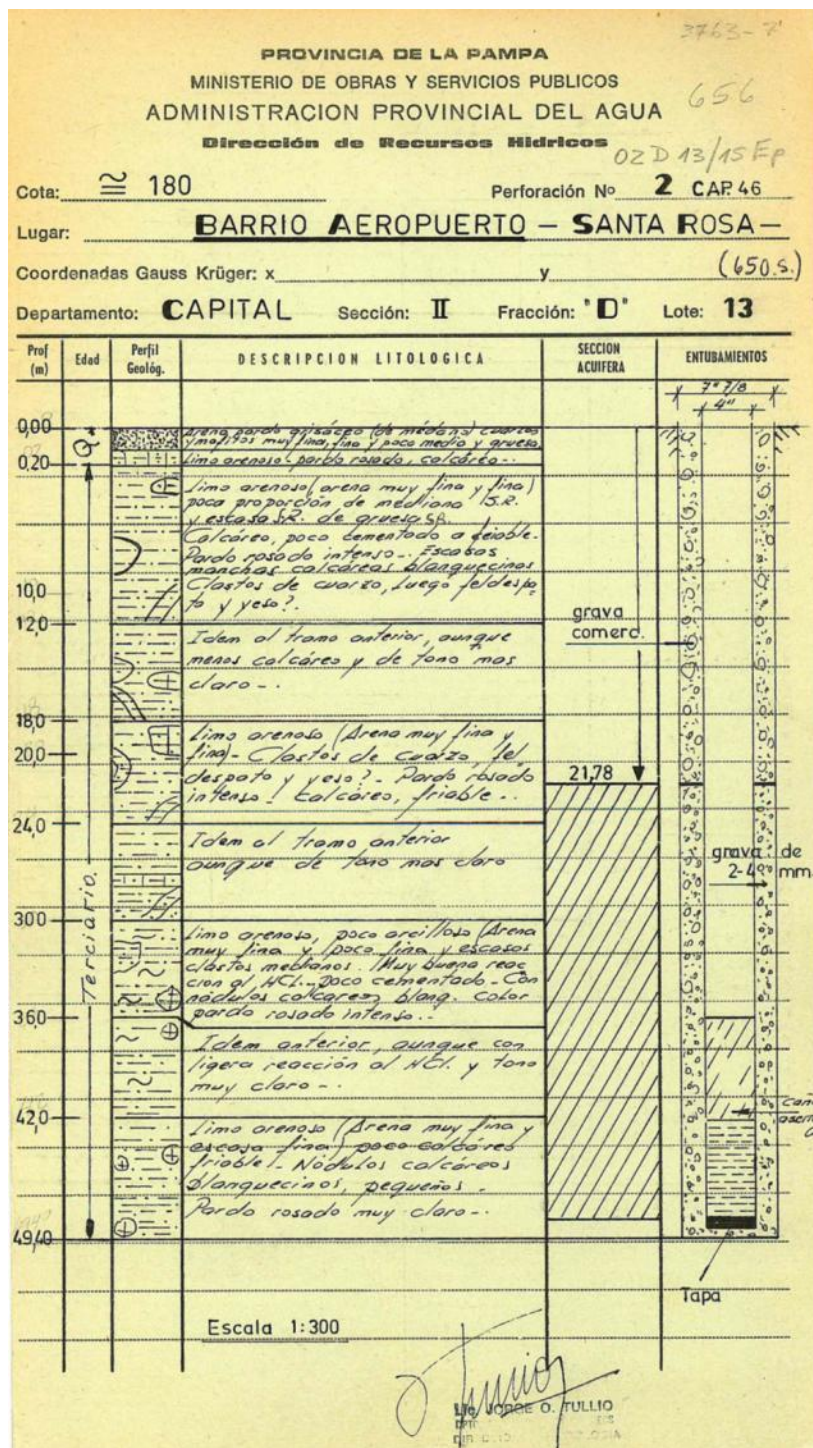 3763-7
PROVINCIA DE LA PAMPA
MINISTERIO DE OBRAS Y SERVICIOS PUBLICOS
656
ADMINISTRACION PROVINCIAL DEL AGUA
Dirección de Recursos Hídricos
02 D 13/15 Ep
Cota: ≅ 180 Perforación Nº 2 CAP. 46
Lugar: BARRIO AEROPUERTO - SANTA ROSA -
Coordenadas Gauss Krüger: x y (650.s.)
Departamento: CAPITAL Sección: II Fracción: "D" Lote: 13
Prof (m) Edad Perfil Geológ. DESCRIPCION LITOLOGICA SECCION ACUIFERA ENTUBAMIENTOS
7" 7/8
4"
0,00
Arena pardo grisáceo (de médano) cuarzos
y mafitos muy fina, fina y poco media y gruesa
Q
0,20
Limo arenoso - pardo rosado, calcáreo -.
Limo arenoso (arena muy fina y fina)
poca proporción de mediana S.R.
y escasa S.R. de gruesa S.R.
Calcáreo, poco cementado a
Pardo rosado intenso -. Escasas
manchas calcáreas blanquecinas
10,0
Clastos de cuarzo, luego feldespa-
to y yeso?.
12,0
grava
comerc.
Idem al tramo anterior, aunque
menos calcáreo y de tono mas
claro -.
18,0
Limo arenoso (Arena muy fina y
fina)- Clastos de cuarzo, fel
20,0
despato y yeso? - Pardo rosado
intenso! Calcáreo, friable -.
21,78
24,0
Idem al tramo anterior
aunque de tono mas claro
grava de
2-4 mm
Terciario.
30,0
Limo arenoso, poco arcilloso (Arena
muy fina y poco fina y escasos
clastos medianos. Muy buena reac
cion al HCL - poco cementado - Con
nódulos calcareos blanq. color
pardo rosado intenso -.
36,0
Idem anterior, aunque con
ligera reacción al HCl. y tono
muy claro -.
42,0
Limo arenoso (Arena muy fina y
escasa fina) poco calcáreo
friable!. Nódulos calcáreos
blanquecinos, pequeños.
Pardo rosado muy claro -.
49,40
Tapa
Escala 1:300
Lic. JORGE O. TULLIO